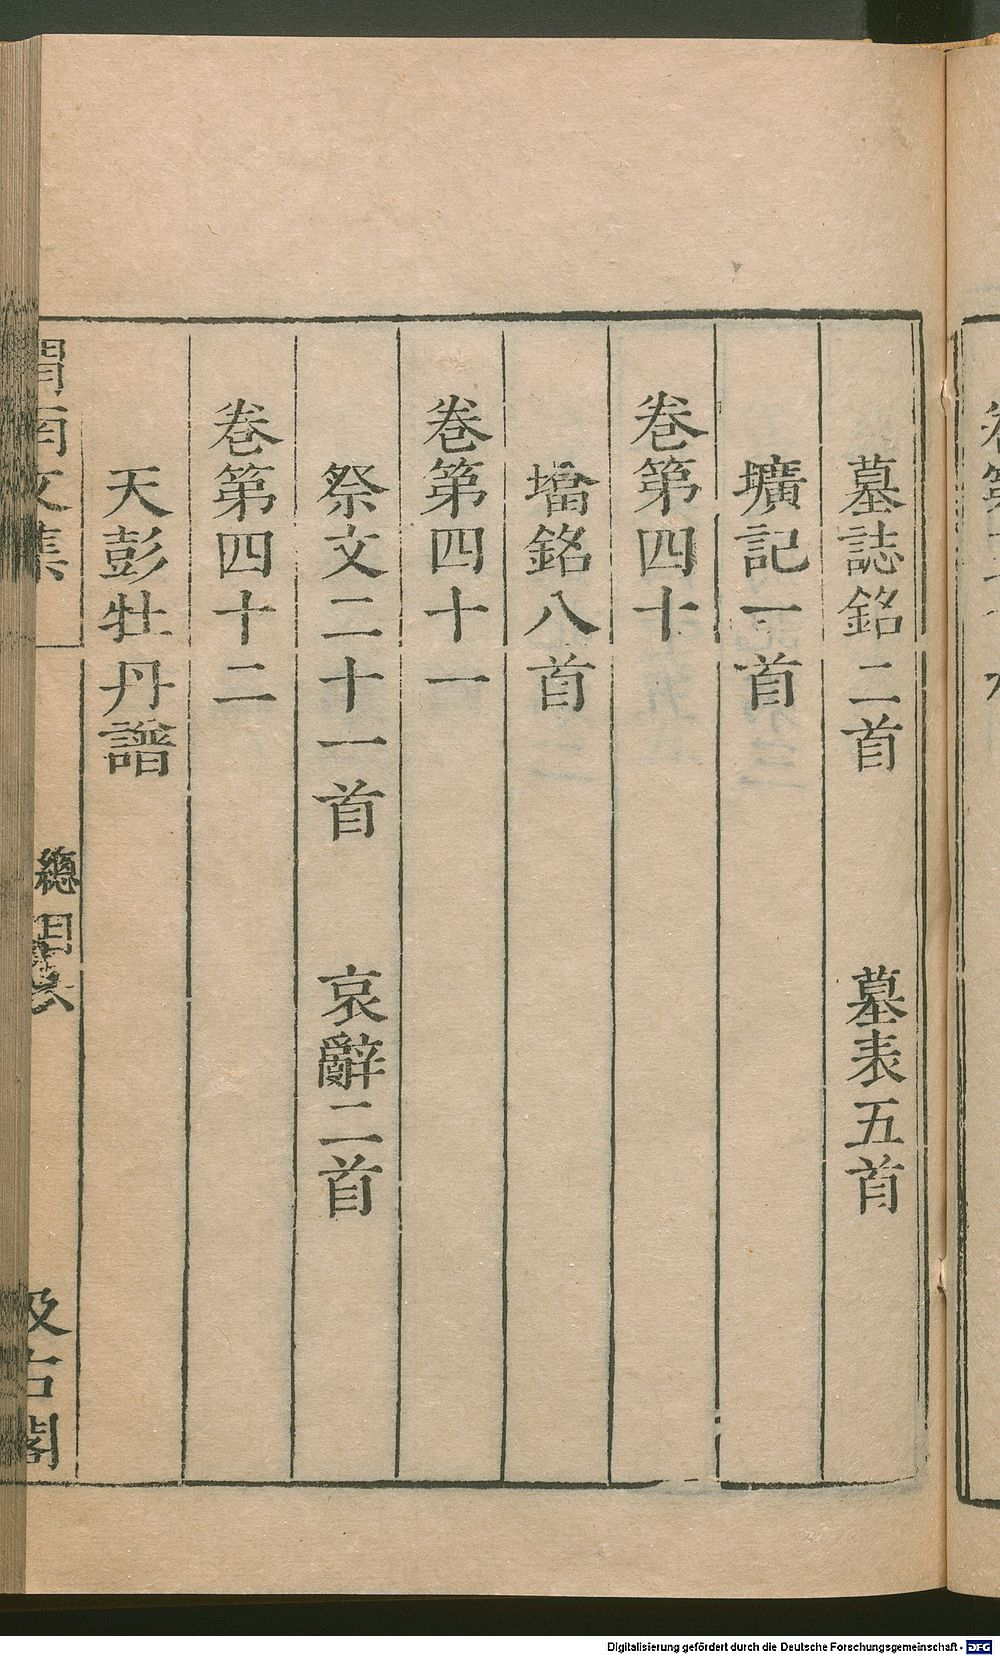 墓誌銘二首　墓表五首
壙記一首
卷第四十
墖銘八首
卷第四十一
祭文二十一首　哀辭二首
卷第四十二
天彭牡丹譜
渭南文集　總目　汲古閣
Digitalisierung gefördert durch die Deutsche Forschungsgemeinschaft - DFG